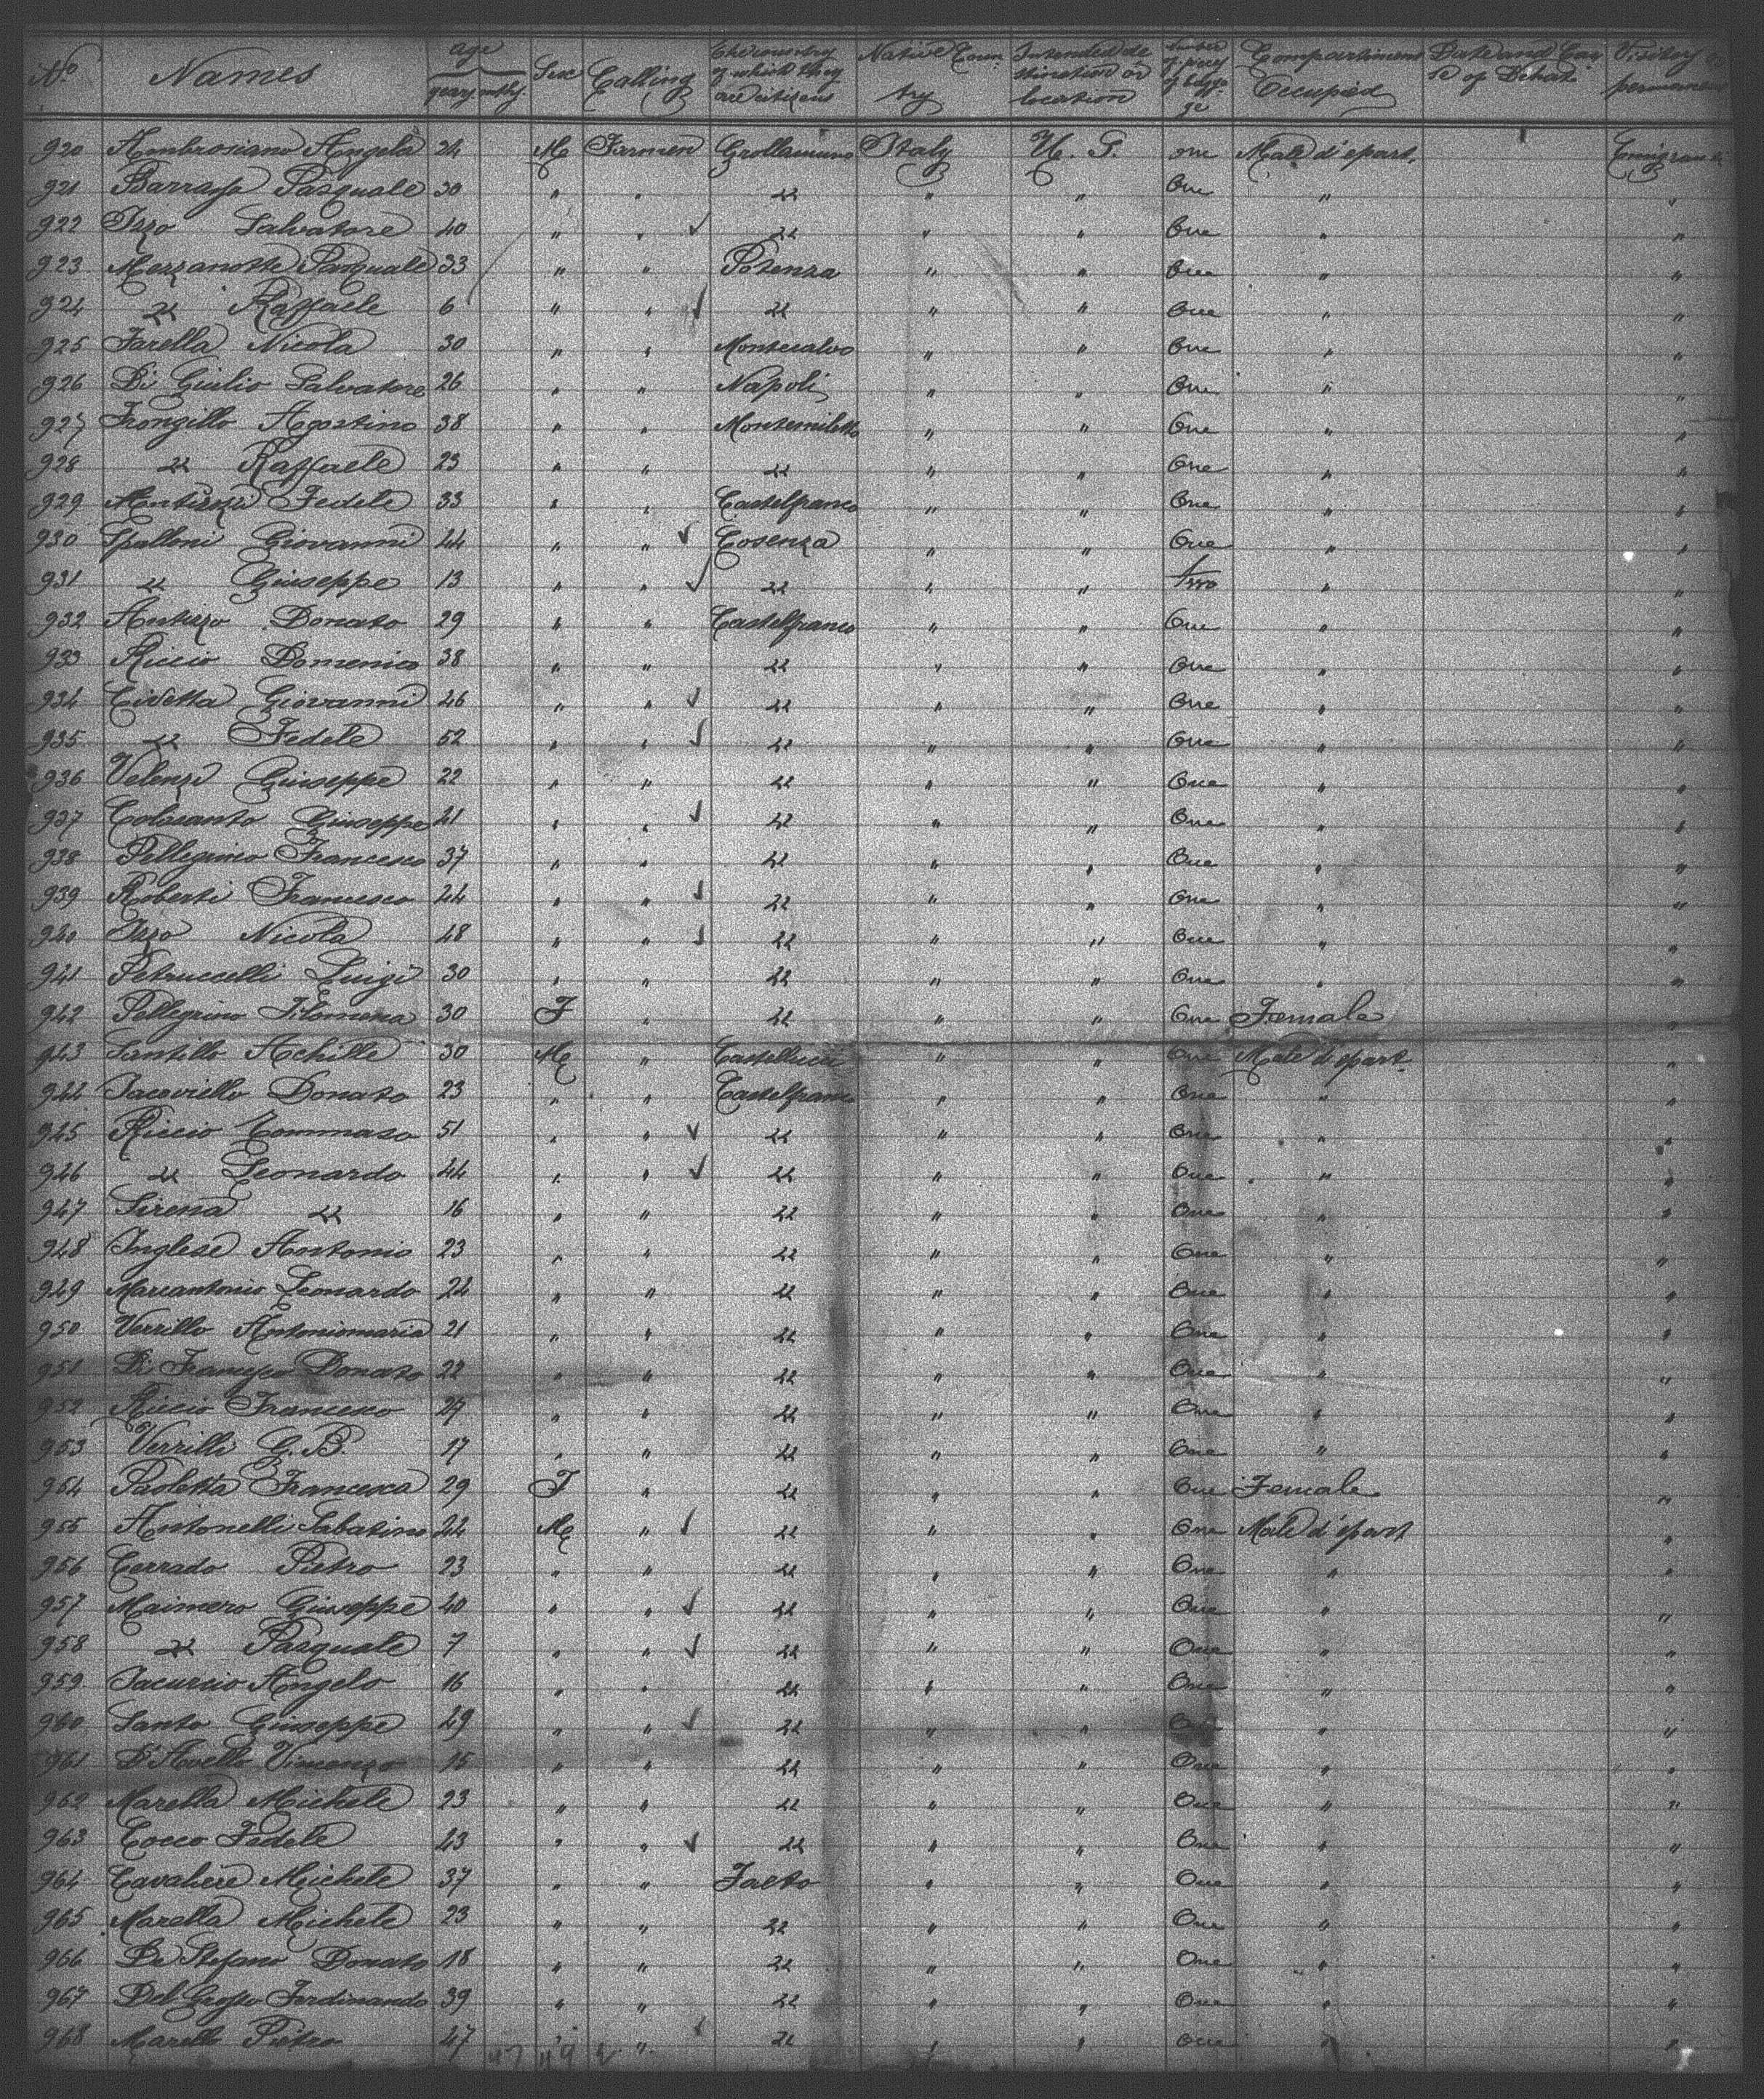 No Names age years mths Sex Calling The country of which they are citizens Native Country Intended destination or location Number of pieces of baggage Compartment Occupied Date and Cause of Death
920 Ambrosiano Angelo 24 M Farmer Italy U. S. one Male d'epart.
921 Pasquale 30 " " " " " One " "
922 Izzo Salvatore 40 " " " " " One " "
923 Mezzanotte Pasquale 33 " " Potenza " " One " "
924 " Raffaele 6 " " " " " One " "
925 Farella Nicola 30 " " Montecalvo " " One " "
926 Di Giulio Salvatore 26 " " Napoli " " One " "
927 Frongillo Agostino 38 " " Montemiletto " " One " "
928 " Raffaele 23 " " " " " One " "
929 Fedele 33 " " Castelfranco " " One " "
930 Spalloni Giovanni 44 " " Cosenza " " One " "
931 " Giuseppe 13 " " " " " Two " "
932 Antizzo Donato 29 " " Castelfranco " " One " "
933 Riccio Domenico 38 " " " " " One " "
934 Civetta Giovanni 46 " " " " " One " "
935 " Fedele 52 " " " " " One " "
936 Velenzi Giuseppe 22 " " " " " One " "
937 Colasanto Giuseppe 41 " " " " " One " "
938 Pellegrino Francesco 37 " " " " " One " "
939 Roberti Francesco 44 " " " " " One " "
940 Izzo Nicola 48 " " " " " One " "
941 Petruccelli Luigi 30 " " " " " One " "
942 Pellegrino Filomena 30 F " " " " One Female "
943 Santillo Achille 30 M " Castelluccio " " One Male d'epart. "
944 Iacoviello Donato 23 " " Castelfranco " " One " "
945 Riccio Tommaso 51 " " " " " One " "
946 " Leonardo 44 " " " " " One " "
947 Sirena " 16 " " " " " One " "
948 Inglese Antonio 23 " " " " " One " "
949 Marcantonio Leonardo 24 " " " " " One " "
950 Verrillo Antoniomaria 21 " " " " " One " "
951 Di Francesco Donato 22 " " " " " One " "
952 Riccio Francesco 27 " " " " " One " "
953 Verrilli G. B. 17 " " " " " One " "
954 Paoletta Francesca 29 F " " " " One Female "
955 Antonelli Sabatino M " " " " One Male d'epart "
956 Cerrado Pietro 23 " " " " " One " "
957 Maimero Giuseppe 40 " " " " " One " "
958 " Pasquale 7 " " " " " One " "
959 Iacurcio Angelo 16 " " " " " One " "
960 Santo Giuseppe 49 " " " " " One " "
961 Vincenzo 15 " " " " " One " "
962 Marella Michele 23 " " " " " One " "
963 Cocco Fedele 43 " " " " " One " "
964 Cavaliere Michele 37 " " Faeto " " One " "
965 Marella Michele 23 " " " " " One " "
966 De Stefano Donato 18 " " " " " One " "
967 Del Grosso Ferdinando 39 " " " " " One " "
968 Marella Pietro 47 " " " " " One " "